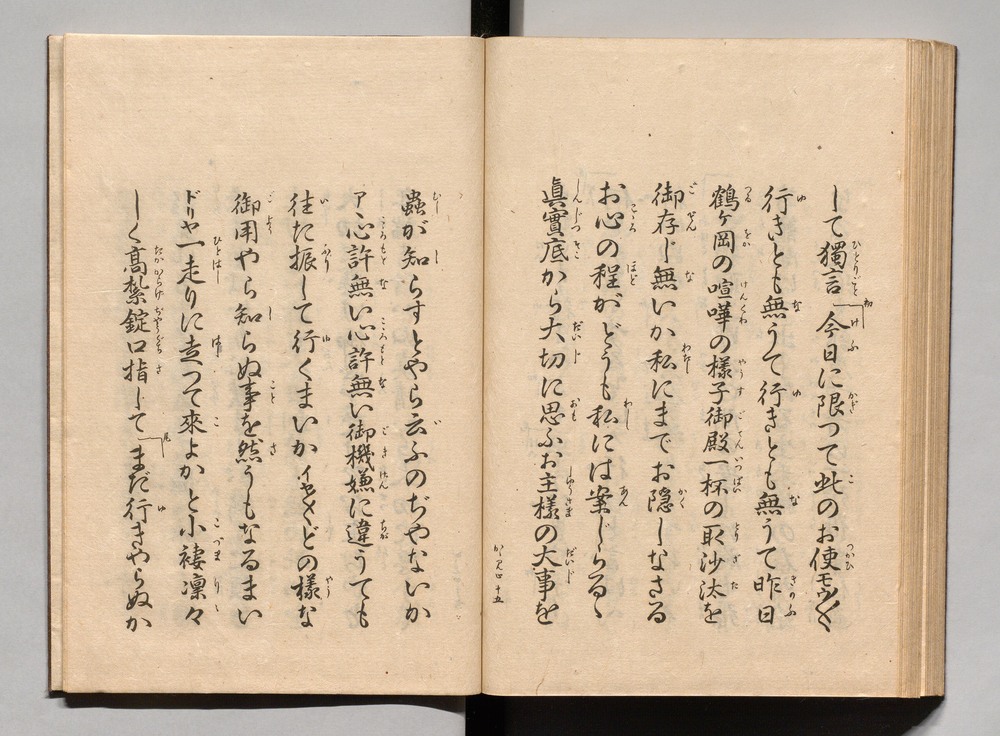 して獨言今日に限つて此のお使モウ〳〵
行きとも無うて行きとも無うて昨日
鶴ヶ岡の喧嘩の樣子御殿一杯の取沙汰を
御存じ無いか私にまでお隱しなさる
お心の程がどうも私には案じらるゝ
眞實底から大切に思ふお主樣の大事を
蟲が知らすとやら云ふのぢやないか
アヽ心許無い心許無い御機嫌に違うても
往た振して行くまいかイヤ〳〵どの樣な
御用やら知らぬ事を然うもなるまい
ドリャ一走りに走つて來よかと小褄凜々
しく高紮錠口指して まだ行きやらぬか